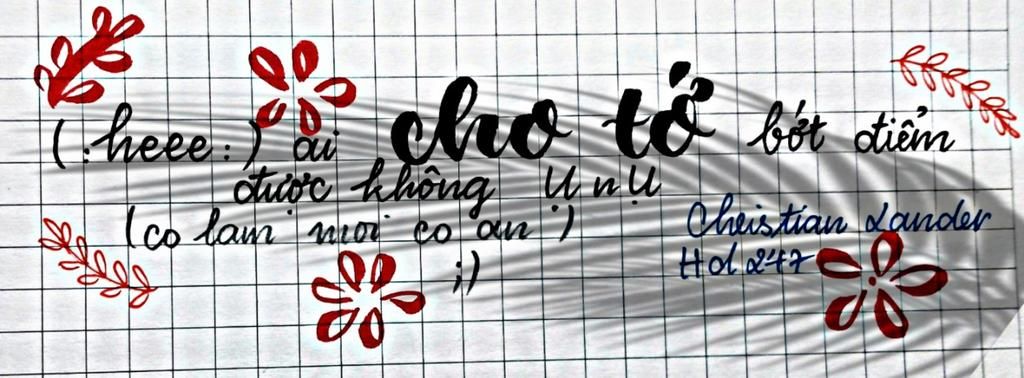 (:heee:) ai cho tớ bớt điểm
được không ụ n ụ
(co lam moi co an)
;)
Cheistian Lander
Hd 247